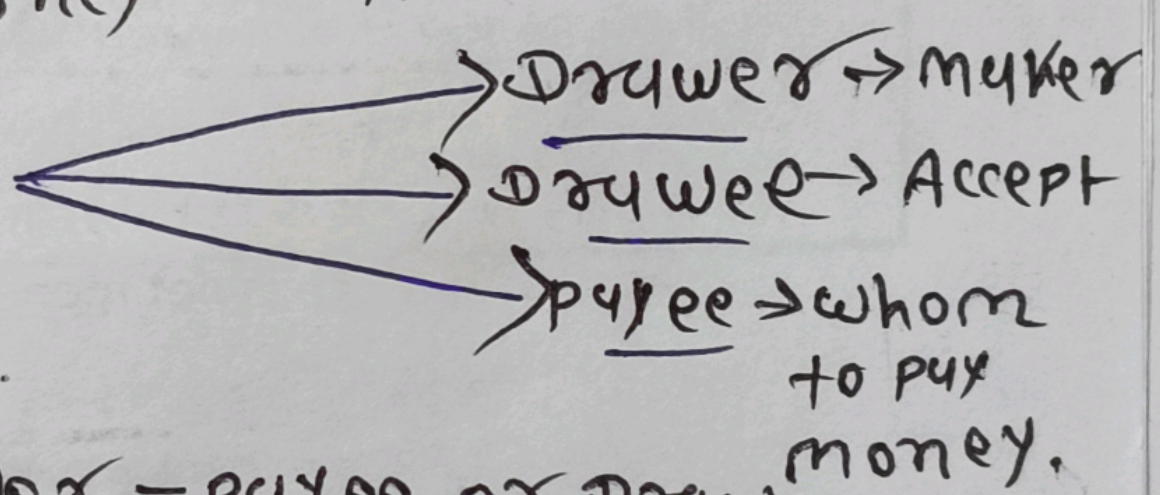 Drawer → Maker
Drawee → Accept
Payee → whom
to pay
money.
- Payee or